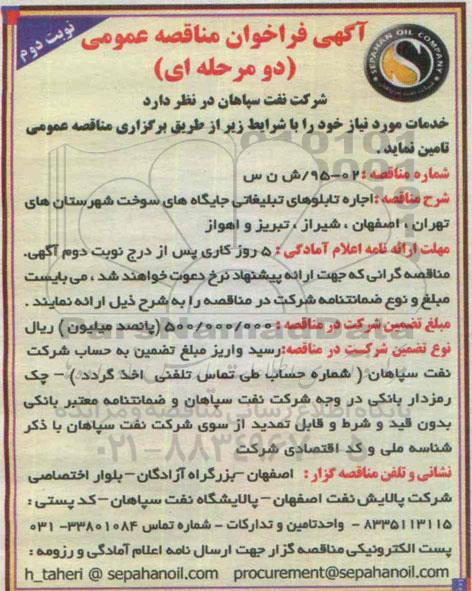 نوبت دوم
SEPAHAN OIL COMPANY
آگهی فراخوان مناقصه عمومی
(دو مرحله ای)
شرکت نفت سپاهان در نظر دارد
خدمات مورد نیاز خود را با شرایط زیر از طریق برگزاری مناقصه عمومی
تامین نماید .
شماره مناقصه : ۰۲-۹۵/ش ن س
شرح مناقصه : اجاره تابلوهای تبلیغاتی جایگاه های سوخت شهرستان های
تهران ، اصفهان ، شیراز ، تبریز و اهواز
مهلت ارائه نامه اعلام آمادگی : ۵ روز کاری پس از درج نوبت دوم آگهی.
مناقصه گرانی که جهت ارائه پیشنهاد نرخ دعوت خواهند شد ، می بایست
مبلغ و نوع ضمانتنامه شرکت در مناقصه را به شرح ذیل ارائه نمایند .
مبلغ تضمین شرکت در مناقصه : ۵۰۰/۰۰۰/۰۰۰ (پانصد میلیون) ریال
نوع تضمین شرکت در مناقصه:رسید واریز مبلغ تضمین به حساب شرکت
نفت سپاهان ( شماره حساب طی تماس تلفنی اخذ گردد ) – چک
رمزدار بانکی در وجه شرکت نفت سپاهان و ضمانتنامه معتبر بانکی
بدون قید و شرط و قابل تمدید از سوی شرکت نفت سپاهان با ذکر
شناسه ملی و کد اقتصادی شرکت
نشانی و تلفن مناقصه گزار : اصفهان –بزرگراه آزادگان–بلوار اختصاصی
شرکت پالایش نفت اصفهان – پالایشگاه نفت سپاهان –کد پستی :
۸۳۳۵۱۱۳۱۱۵ – واحدتامین و تدارکات – شماره تماس ۳۳۸۰۱۰۸۴-۰۳۱
پست الکترونیکی مناقصه گزار جهت ارسال نامه اعلام آمادگی و رزومه :
h_taheri @ sepahanoil.com procurement@sepahanoil.com
ParsNamadData
پایگاه اطلاع رسانی مناقصه و مزایده
۰۲۱-۸۸۳۴۹۶۷۰-۵